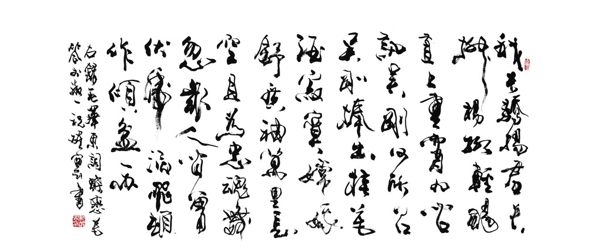 我失驕楊君失
柳楊柳輕颺
直上重霄九問
訊吳剛何所有
吳剛捧出桂花
酒寂寞嫦娥
舒廣袖萬里長
空且為忠魂舞
忽報人間曾
伏虎淚飛頓
作傾盆雨
右錄毛澤東詞蝶戀花
答李淑一書